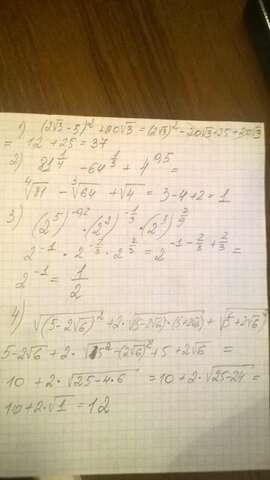 1) (2√3-5)² +20√3 = (2√3)² -20√3+25+20√3
= 12+25=37
2) 81^{1/4} - 64^{1/3} + 4^{0,5} =
⁴√81 - ³√64 + √4 = 3-4+2=1
3) (2⁵)^{-0,2} · (2²)^{-1/3} · (2³)^{2/9}
2^{-1} · 2^{-2/3} · 2^{2/3} = 2^{-1-2/3+2/3} =
2^{-1} = 1/2
4) √(5-2√6)² + 2·√(5-2√6)·(5+2√6) + √(5+2√6)²
5-2√6 + 2·√5²-(2√6)² +5+2√6 =
10 + 2·√25-4·6 = 10+2·√25-24 =
10+2·√1 = 12